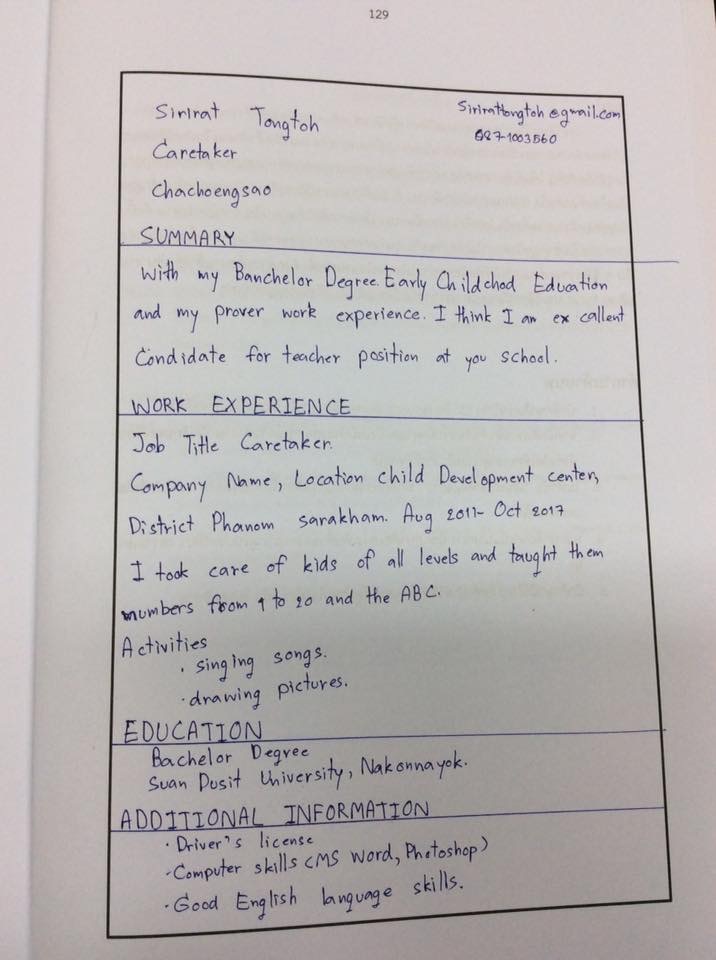 129
Sirirat Tongtoh
Siriratongtoh@gmail.com
087-1003560
Caretaker
Chachoengsao
SUMMARY
With my Banchelor Degree. Early Childchod Education
and my prover work experience. I think I am ex callent
Condidate for teacher position at you school.
WORK EXPERIENCE
Job Title Caretaker.
Company Name, Location child Development center,
District Phanom sarakham. Aug 2011- Oct 2017
I took care of kids of all levels and taught them
numbers from 1 to 20 and the ABC.
Activities
· singing songs.
· drawing pictures.
EDUCATION
Bachelor Degree
Suan Dusit University, Nakonnayok.
ADDITIONAL INFORMATION
· Driver's license
· Computer skills (MS Word, Photoshop)
· Good English language skills.